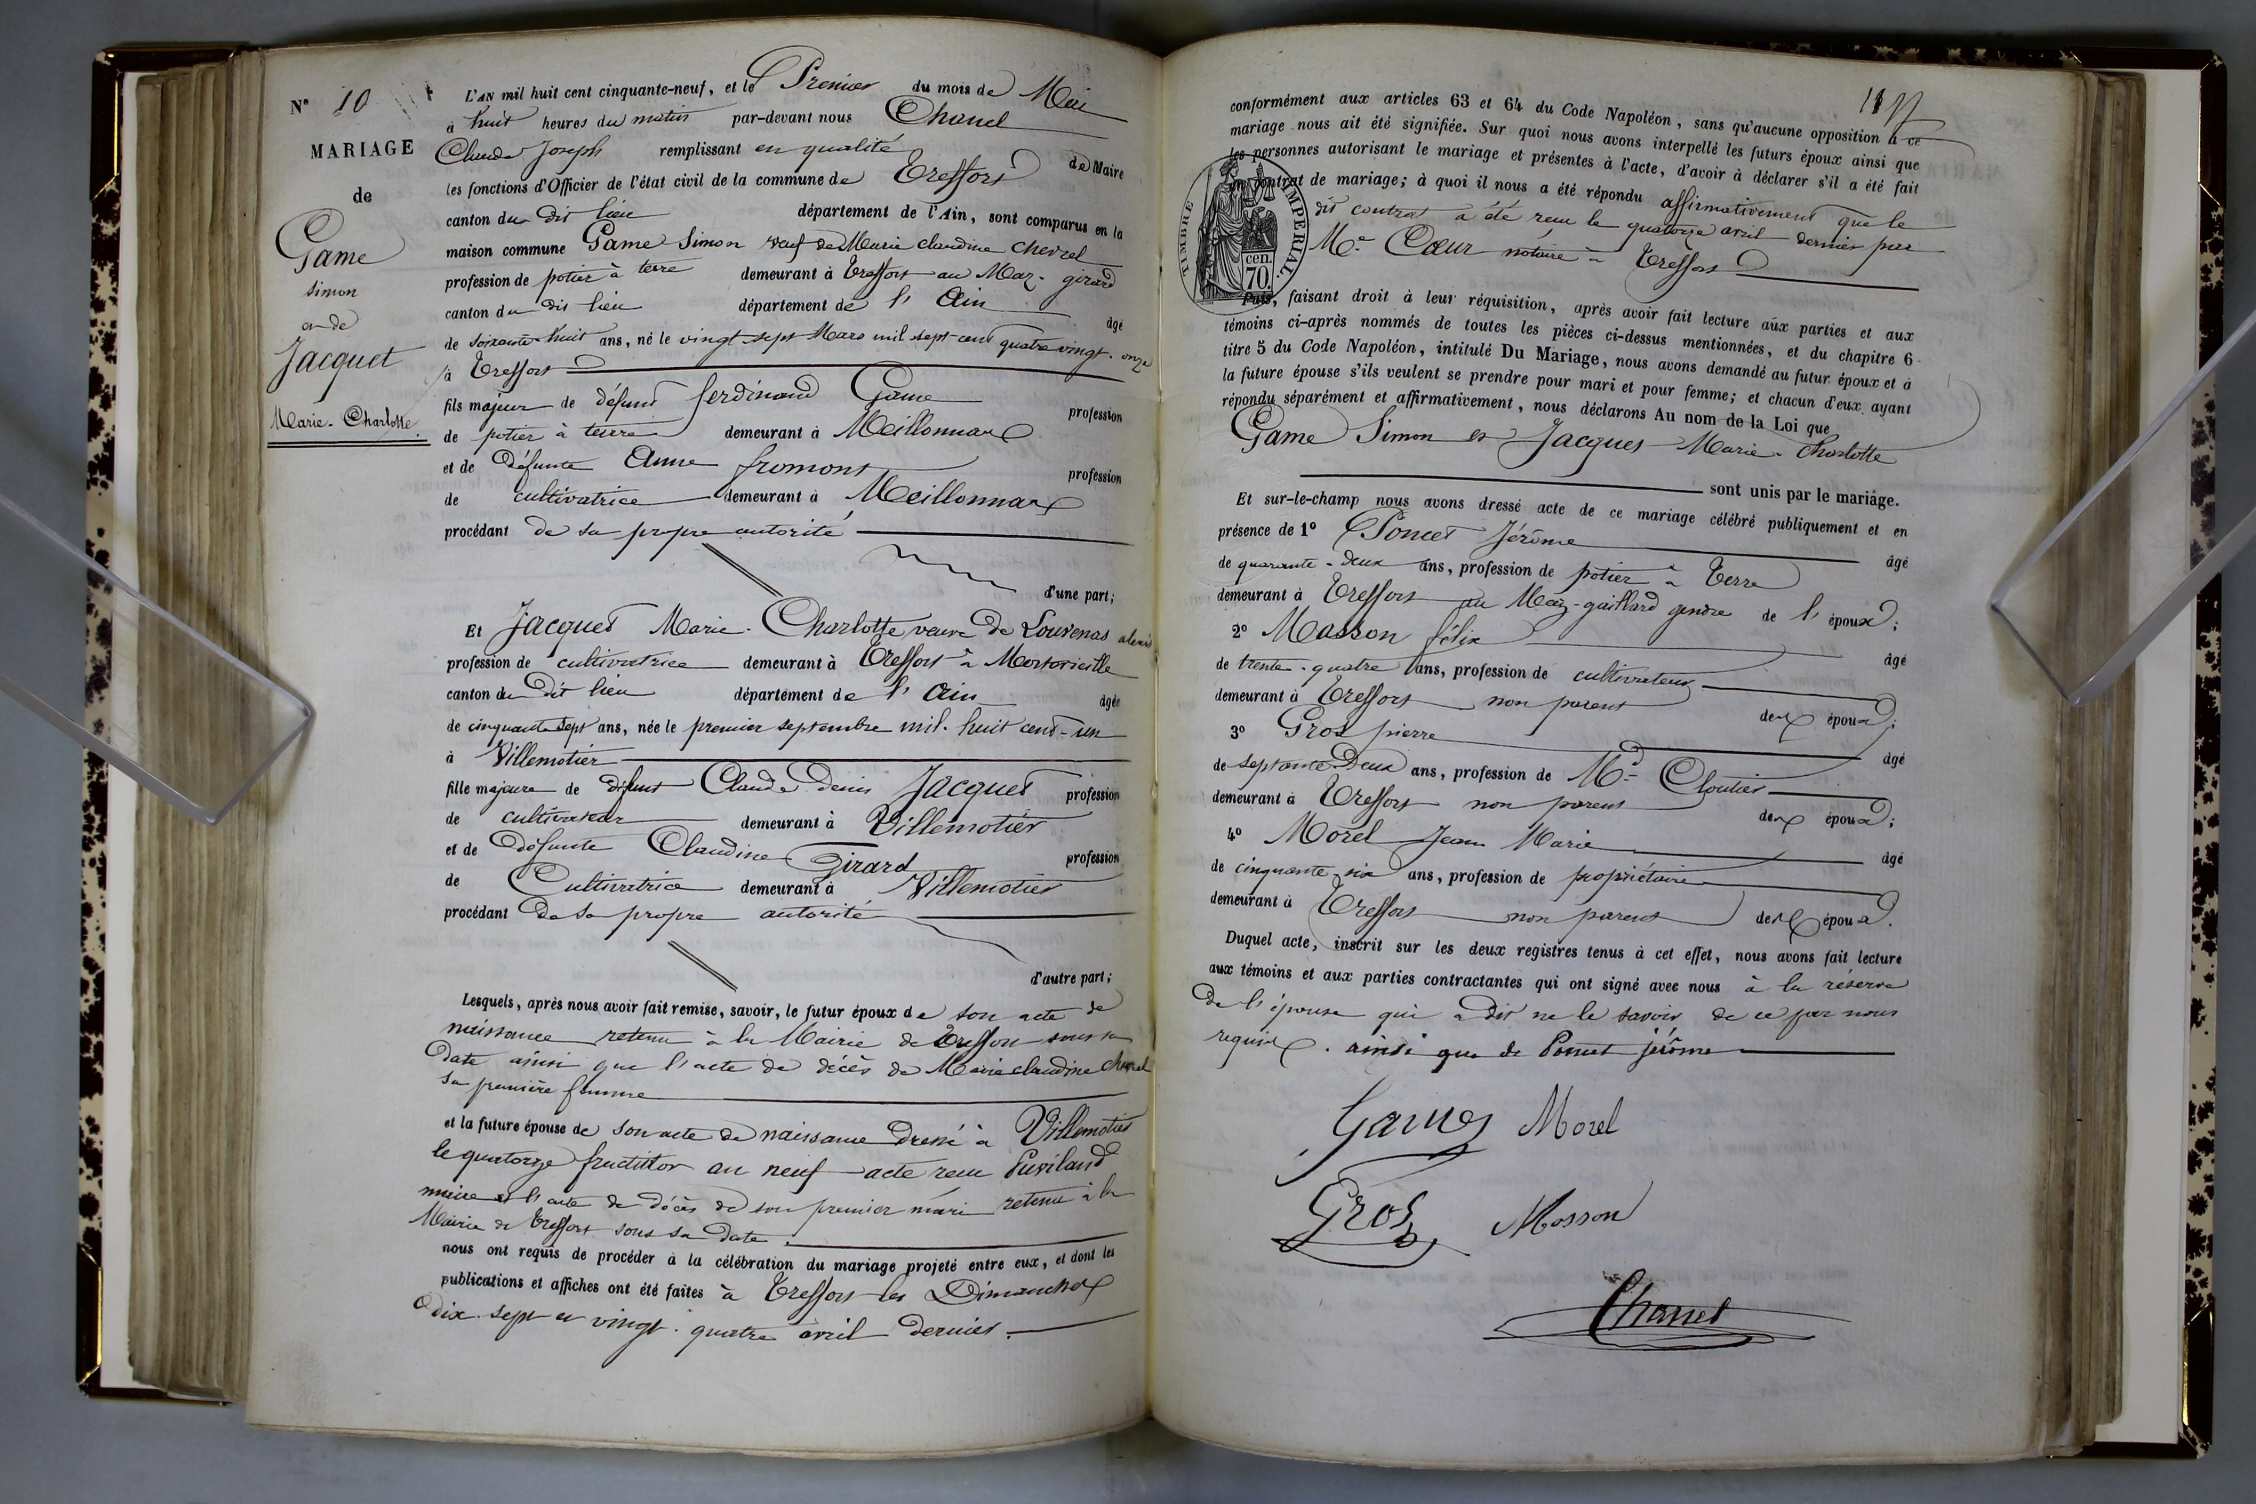 N° 10
MARIAGE
de
Game
Simon
et de
Jacquet
Marie-Charlotte.
L'AN mil huit cent cinquante-neuf, et le Premier du mois de Mai
à huit heures du matin par-devant nous Chanel
Claude Joseph remplissant en qualité de Maire
les fonctions d'Officier de l'état civil de la commune de Treffort
canton du dit lieu département de l'Ain, sont comparus en la
maison commune Game Simon veuf de Marie claudine Chevrel
profession de potier à terre demeurant à Treffort au Maz-girard
canton du dit lieu département de l'Ain âgé
de soixante-huit ans, né le vingt-sept Mars mil sept-cent quatre vingt-onze
à Treffort
fils majeur de défunt ferdinand Game profession
de potier à terre demeurant à Meillonnax
et de Défunte Anne fromont profession
de cultivatrice demeurant à Meillonnax
procédant de sa propre autorité
d'une part;
Et Jacquet Marie-Charlotte veuve de Louvenas alexis
profession de cultivatrice demeurant à Treffort à
canton du Dit lieu département de l'Ain âgée
de cinquante sept ans, née le premier septembre mil-huit cent-un
à Villemotier
fille majeure de défunt Claude denis Jacquet profession
de cultivateur demeurant à Villemotier
et de défunte Claudine Girard profession
de Cultivatrice demeurant à Villemotier
procédant De sa propre autorité
d'autre part;
Lesquels, après nous avoir fait remise, savoir, le futur époux de son acte de
naissance retenu à la Mairie de Treffort sous sa
date ainsi que l'acte de décès de Marie claudine Chevrel
sa première femme
et la future épouse de son acte de naissance dressé à Villemotier
le quatorze fructidor an neuf acte reçu Puvilland
maire et l'acte de décès de son premier mari retenu à la
Mairie de Treffort sous sa date.
nous ont requis de procéder à la célébration du mariage projeté entre eux, et dont les
publications et affiches ont été faites à Treffort les Dimanches
dix-sept et vingt-quatre avril dernier.
conformément aux articles 63 et 64 du Code Napoléon, sans qu'aucune opposition à ce
mariage nous ait été signifiée. Sur quoi nous avons interpellé les futurs époux ainsi que
les personnes autorisant le mariage et présentes à l'acte, d'avoir à déclarer s'il a été fait
un contrat de mariage; à quoi il nous a été répondu affirmativement que le
dit contrat a été reçu le quatorze avril dernier par
Me Cœur notaire à Treffort
TIMBRE IMPERIAL.
cen.
70.
Puis, faisant droit à leur réquisition, après avoir fait lecture aux parties et aux
témoins ci-après nommés de toutes les pièces ci-dessus mentionnées, et du chapitre 6
titre 5 du Code Napoléon, intitulé Du Mariage, nous avons demandé au futur époux et à
la future épouse s'ils veulent se prendre pour mari et pour femme; et chacun d'eux ayant
répondu séparément et affirmativement, nous déclarons Au nom de la Loi que
Game Simon et Jacquet Marie-Charlotte
sont unis par le mariage.
Et sur-le-champ nous avons dressé acte de ce mariage célébré publiquement et en
présence de 1° Poncet Jérôme âgé
de quarante-deux ans, profession de potier à Terre
demeurant à Treffort au Maz-gaillard gendre de l'époux;
2° Masson félix âgé
de trente-quatre ans, profession de cultivateur
demeurant à Treffort non parent des époux;
3° Gros pierre âgé
de septante-Deux ans, profession de Md Cloutier
demeurant à Treffort non parent des époux;
4° Morel Jean Marie âgé
de cinquante-six ans, profession de propriétaire
demeurant à Treffort non parent des époux.
Duquel acte, inscrit sur les deux registres tenus à cet effet, nous avons fait lecture
aux témoins et aux parties contractantes qui ont signé avec nous à la réserve
de l'épouse qui a dit ne le savoir de ce par nous
requise. ainsi que de Poncet jérôme
Game Morel
Gros Masson
Chanel